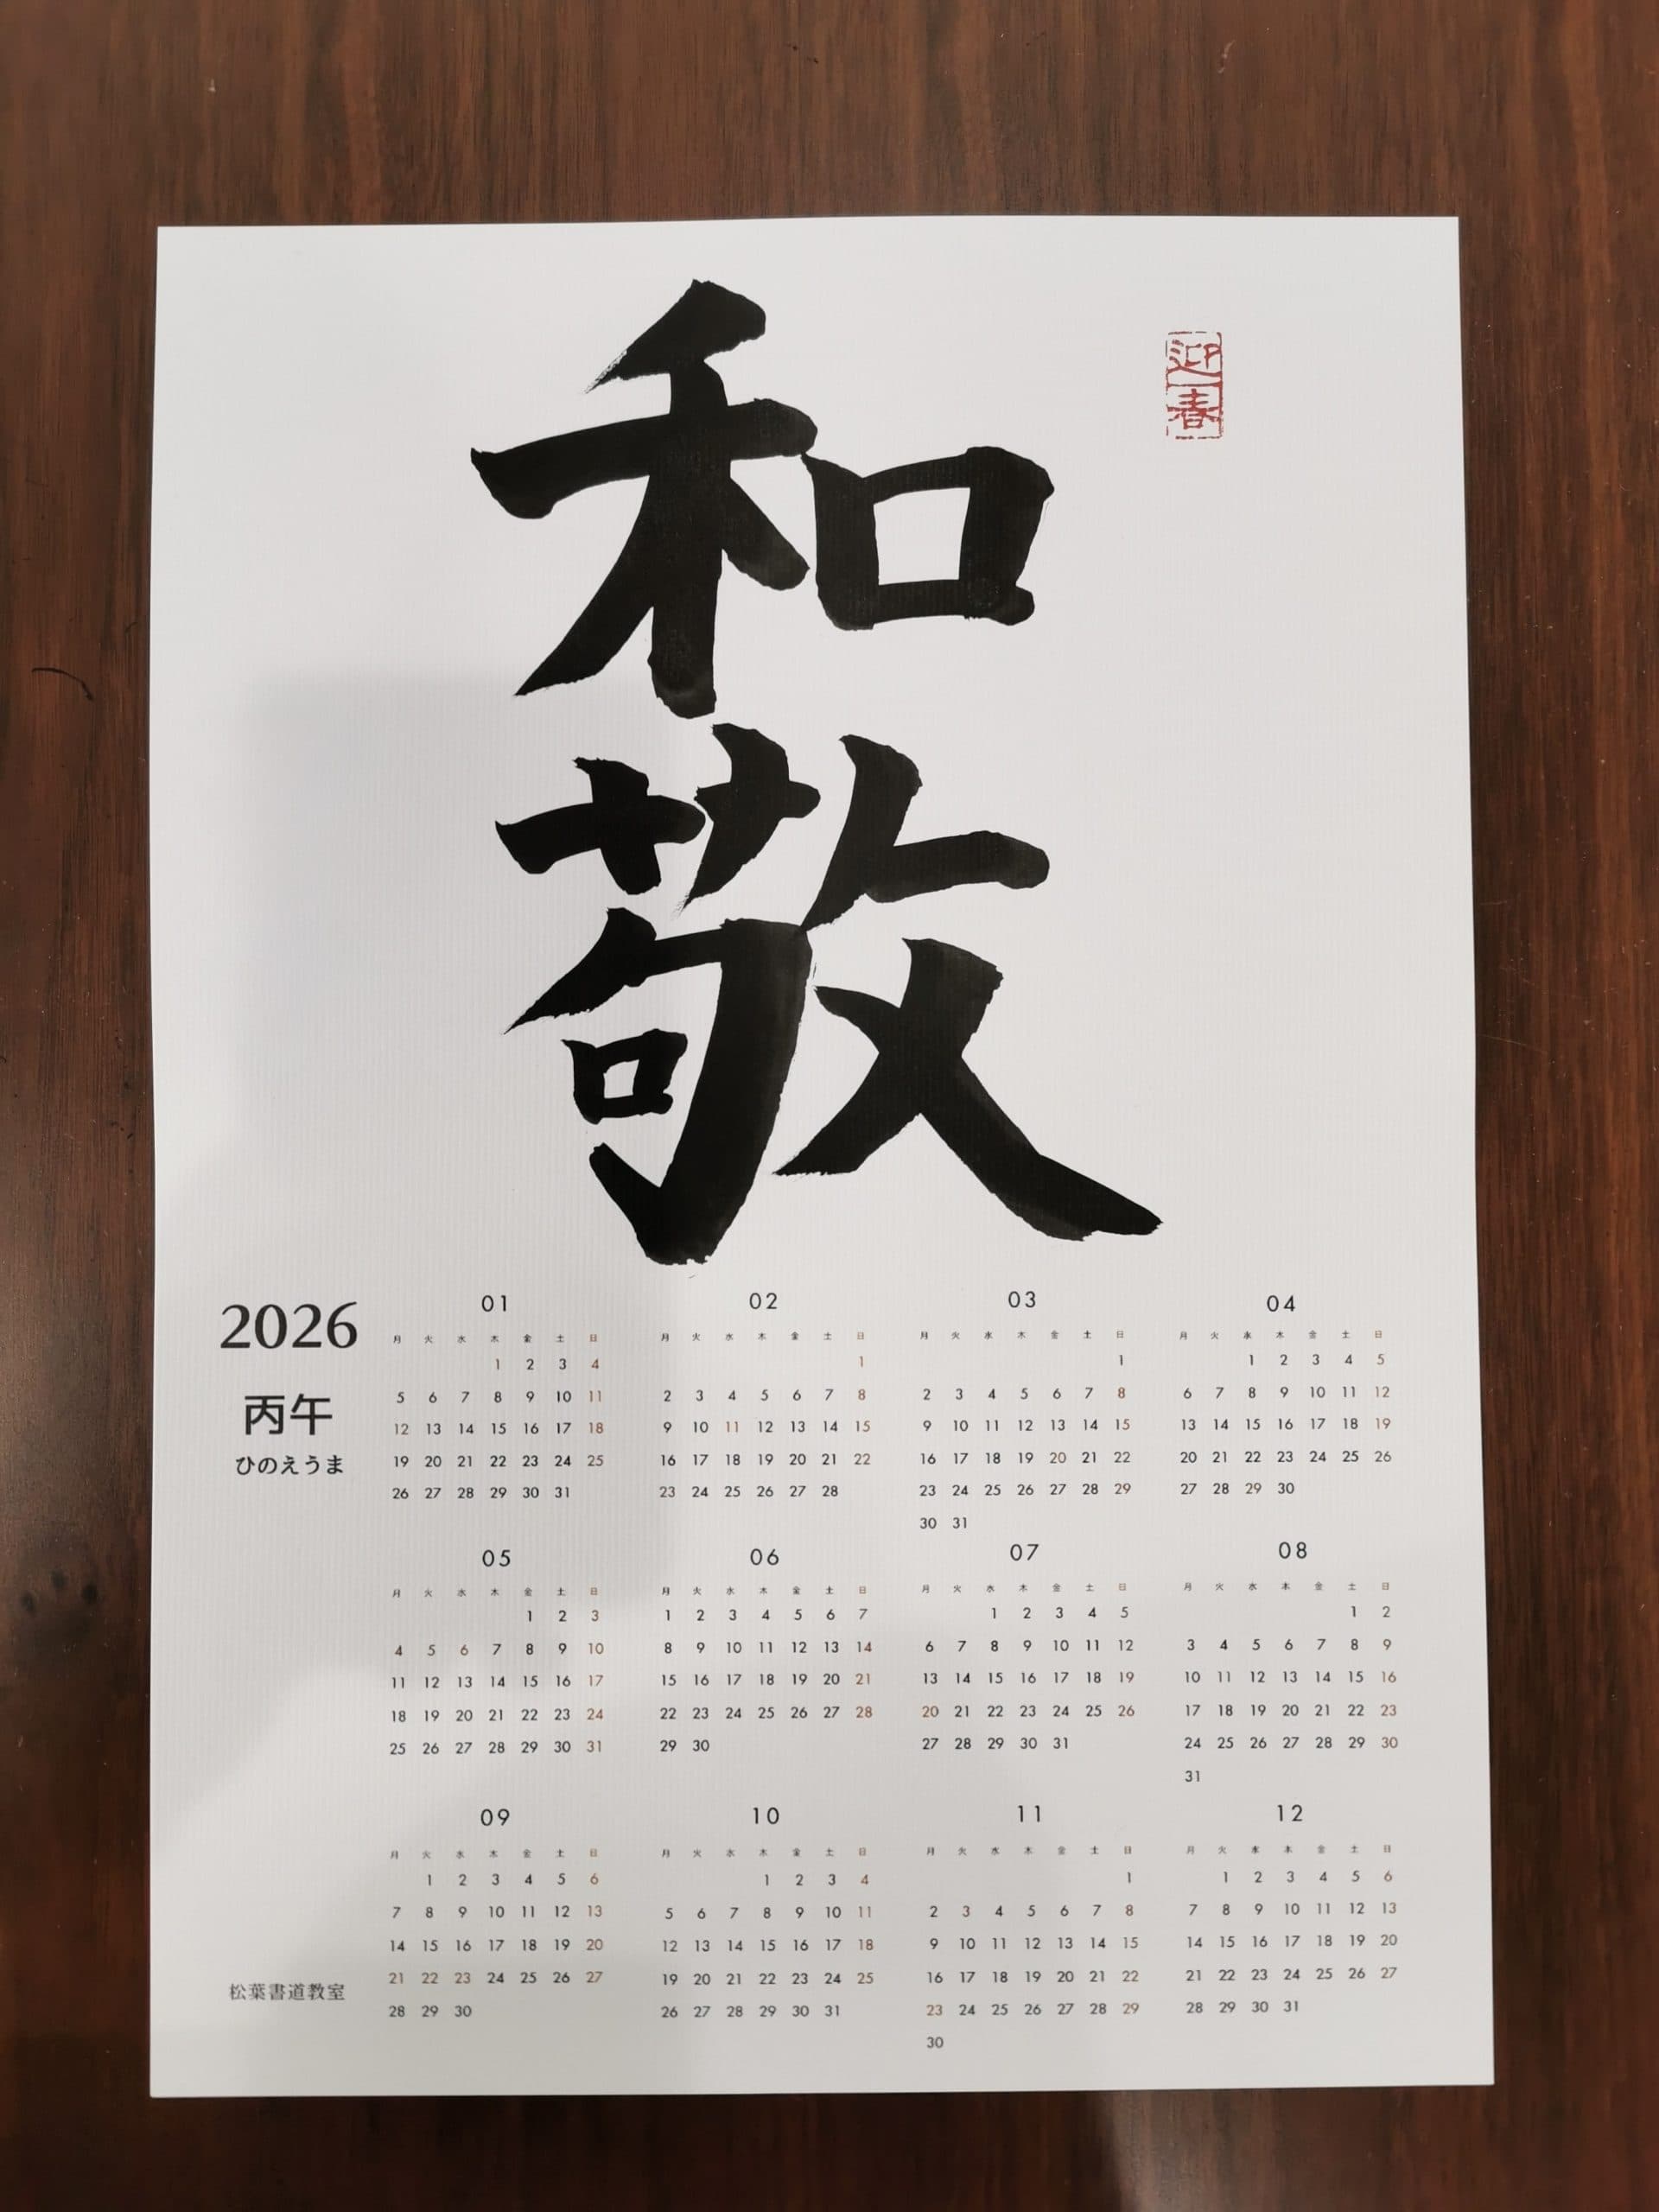 和
敬
迎
春
2026
丙午
ひのえうま
01
月 火 水 木 金 土 日
1 2 3 4
5 6 7 8 9 10 11
12 13 14 15 16 17 18
19 20 21 22 23 24 25
26 27 28 29 30 31
02
月 火 水 木 金 土 日
1
2 3 4 5 6 7 8
9 10 11 12 13 14 15
16 17 18 19 20 21 22
23 24 25 26 27 28
03
月 火 水 木 金 土 日
1
2 3 4 5 6 7 8
9 10 11 12 13 14 15
16 17 18 19 20 21 22
23 24 25 26 27 28 29
30 31
04
月 火 水 木 金 土 日
1 2 3 4 5
6 7 8 9 10 11 12
13 14 15 16 17 18 19
20 21 22 23 24 25 26
27 28 29 30
05
月 火 水 木 金 土 日
1 2 3
4 5 6 7 8 9 10
11 12 13 14 15 16 17
18 19 20 21 22 23 24
25 26 27 28 29 30 31
06
月 火 水 木 金 土 日
1 2 3 4 5 6 7
8 9 10 11 12 13 14
15 16 17 18 19 20 21
22 23 24 25 26 27 28
29 30
07
月 火 水 木 金 土 日
1 2 3 4 5
6 7 8 9 10 11 12
13 14 15 16 17 18 19
20 21 22 23 24 25 26
27 28 29 30 31
08
月 火 水 木 金 土 日
1 2
3 4 5 6 7 8 9
10 11 12 13 14 15 16
17 18 19 20 21 22 23
24 25 26 27 28 29 30
31
09
月 火 水 木 金 土 日
1 2 3 4 5 6
7 8 9 10 11 12 13
14 15 16 17 18 19 20
21 22 23 24 25 26 27
28 29 30
10
月 火 水 木 金 土 日
1 2 3 4
5 6 7 8 9 10 11
12 13 14 15 16 17 18
19 20 21 22 23 24 25
26 27 28 29 30 31
11
月 火 水 木 金 土 日
1
2 3 4 5 6 7 8
9 10 11 12 13 14 15
16 17 18 19 20 21 22
23 24 25 26 27 28 29
30
12
月 火 水 木 金 土 日
1 2 3 4 5 6
7 8 9 10 11 12 13
14 15 16 17 18 19 20
21 22 23 24 25 26 27
28 29 30 31
松葉書道教室